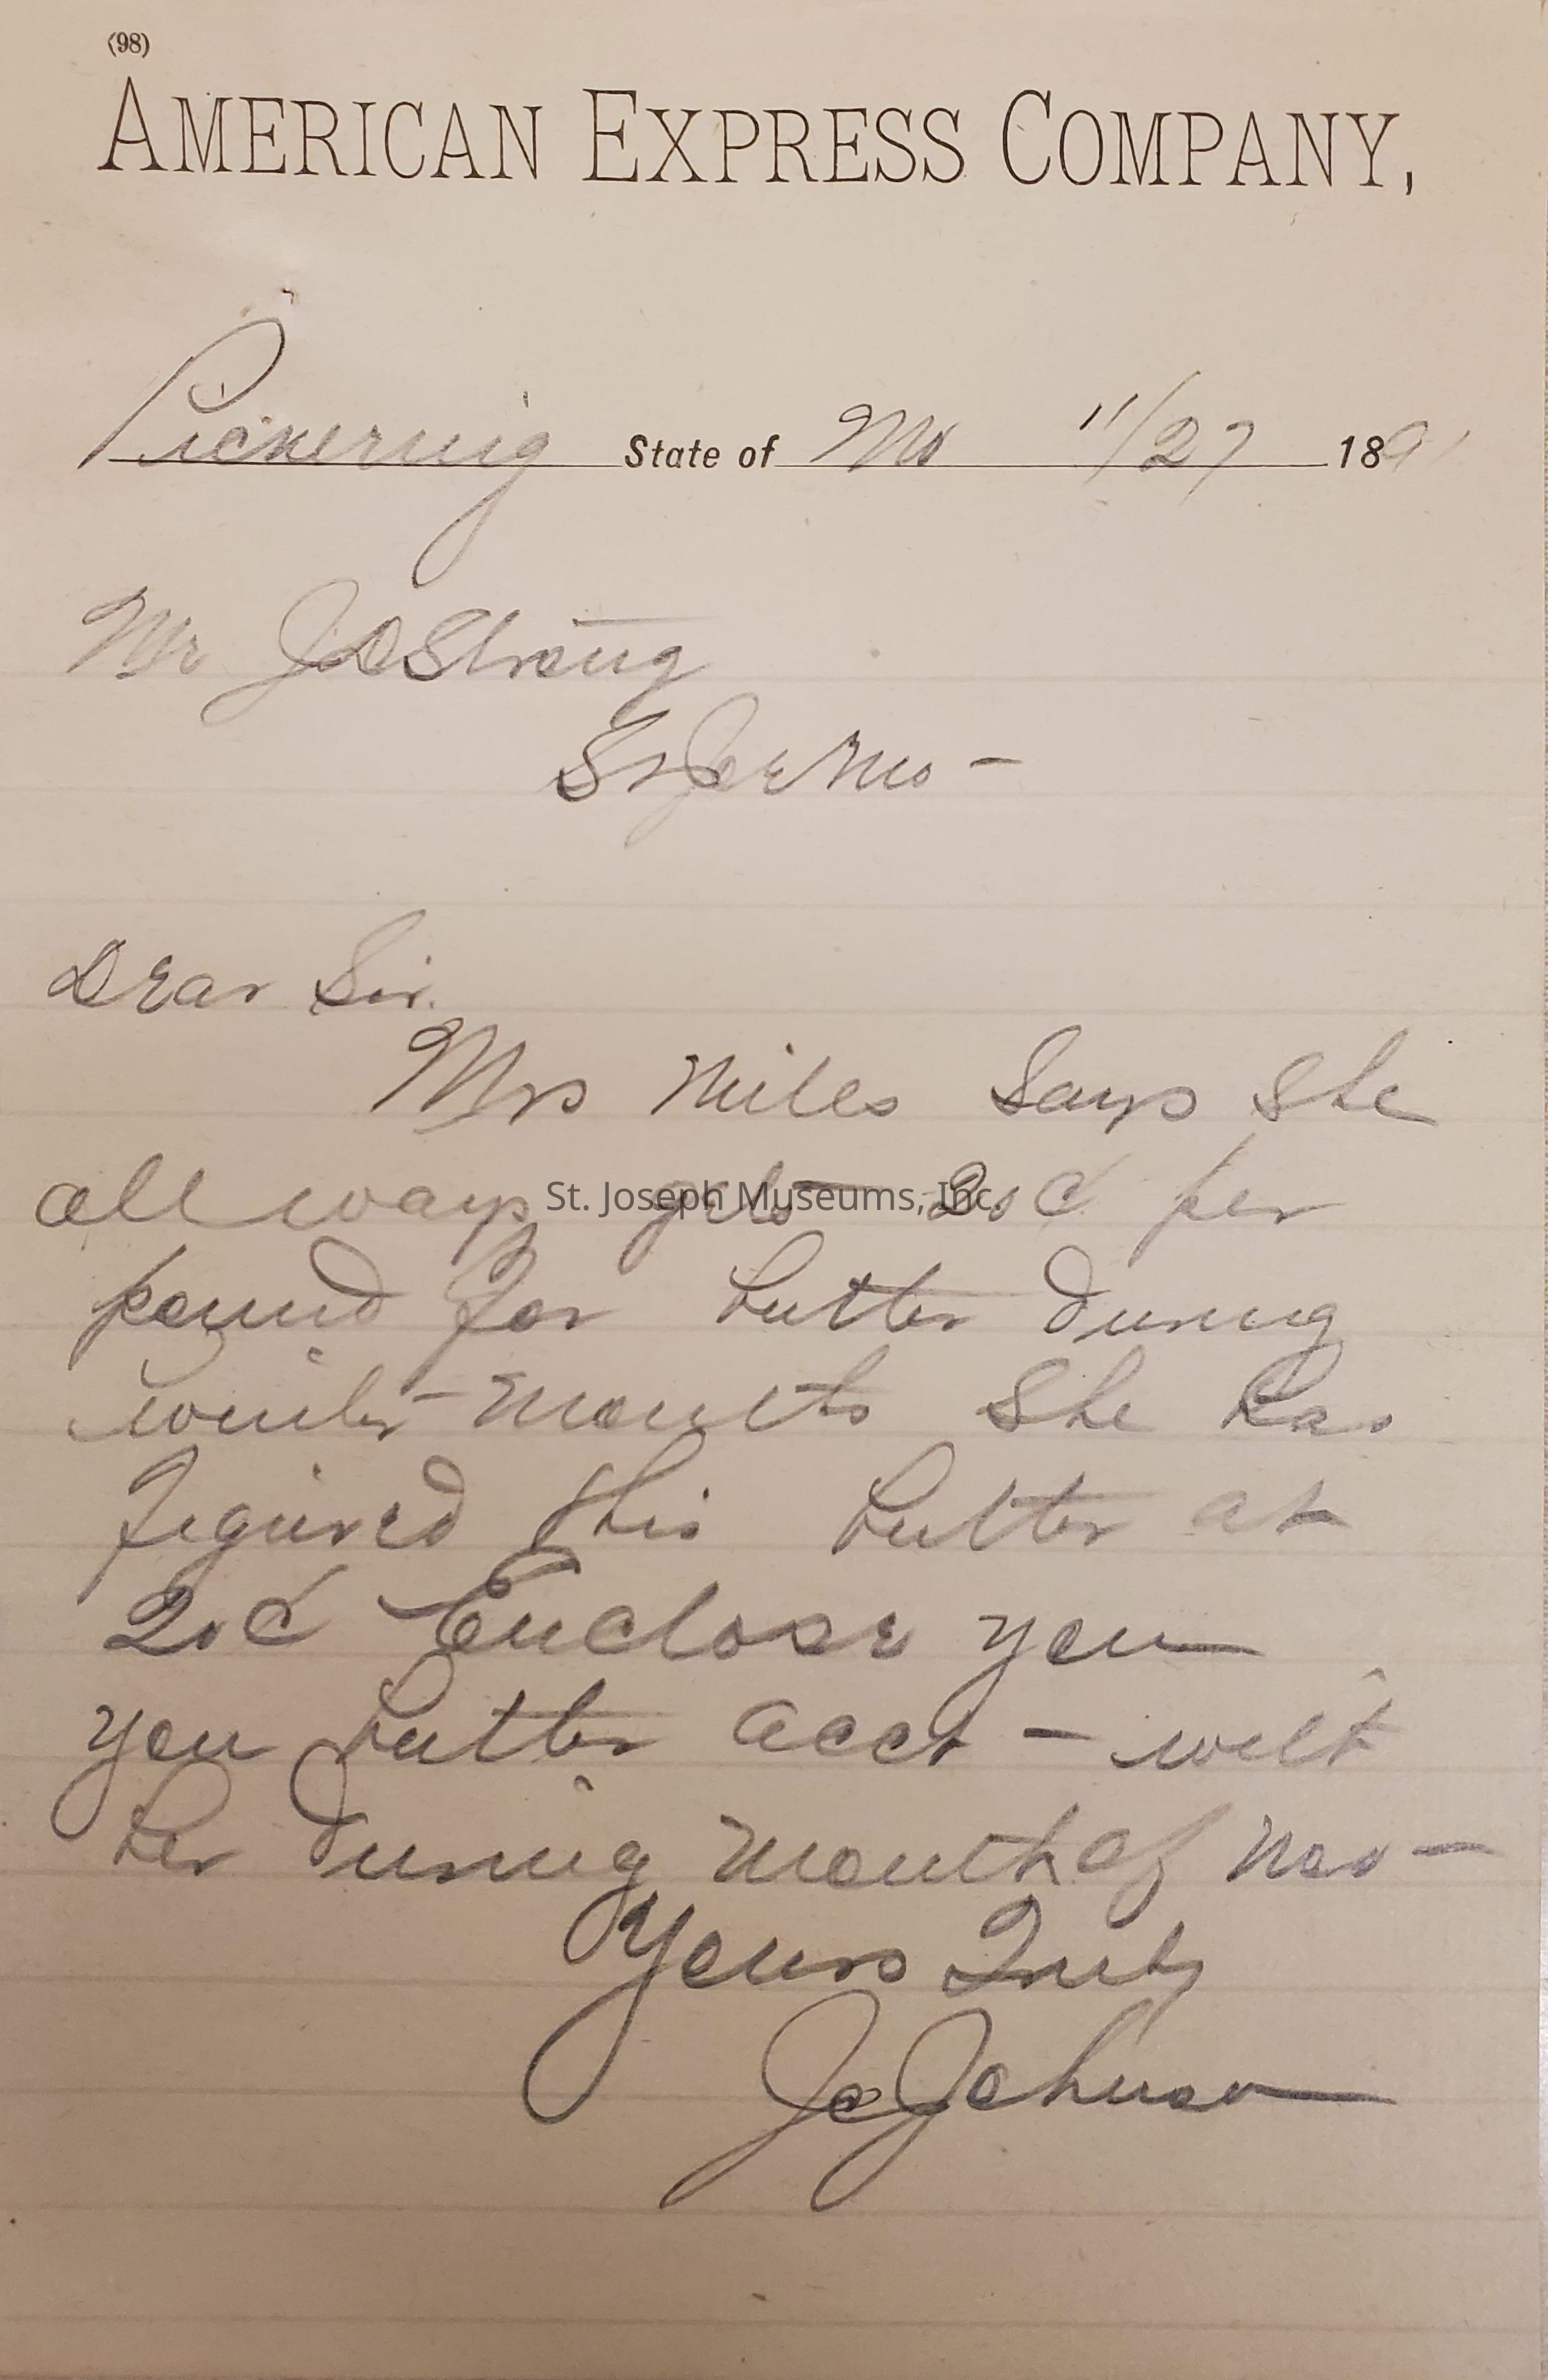 (98)
AMERICAN EXPRESS COMPANY,
Pickering State of Mo 11/27 1891
Mr J D Strong
St Joe Mo -
Dear Sir.
Mrs Miles Says She
all ways gets 20¢ per
St. Joseph Museums, Inc.
pound for butter during
winter months She has
figured this butter at
20¢ Enclose you
you butter acct - with
her during month of Nov -
Yours Truly
Jo Johnson